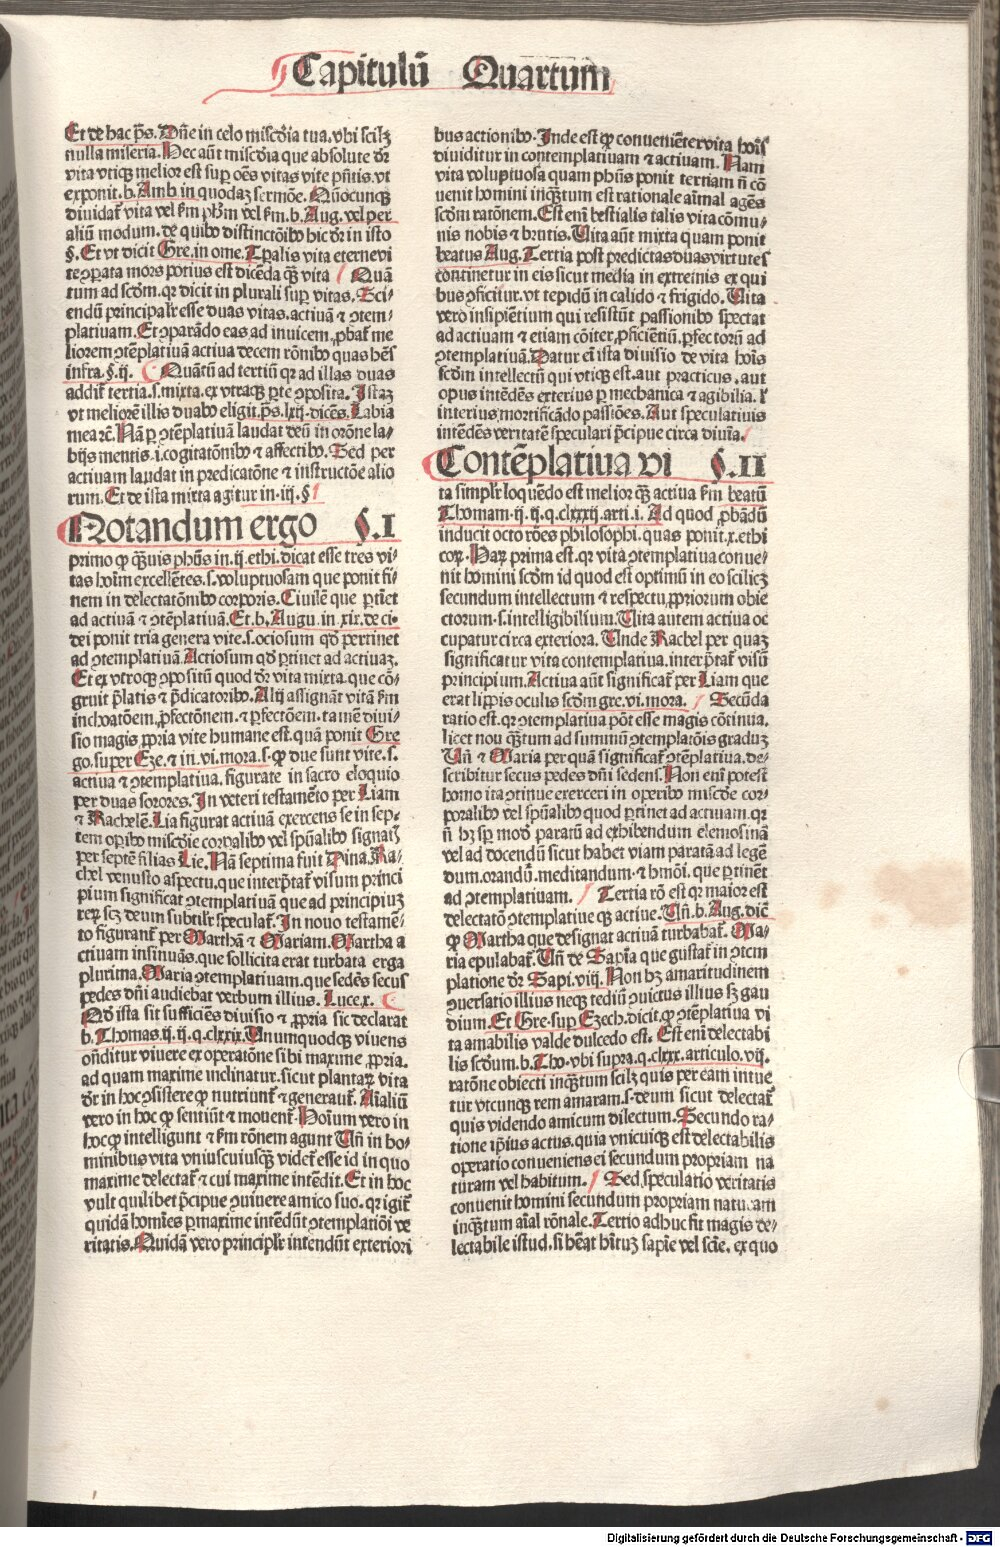 Capitulū Quartum
Et de hac p̄s. Dn̄e in celo misc̄dia tua. vbi scilꝫ
nulla miseria. Hec aūt misc̄dia que absolute dr̄
vita vtiqꝫ melior est suꝑ oēs vitas vite pn̄tis. vt
exponit. b. Amb. in quodaꝫ sermōe. Quōcunqꝫ
diuidat᷑ vita vel s̄m ph̄m vel s̄m. b. Aug. vel per
aliū modum. de quibꝰ distinctōibꝰ hic dr̄ in isto
§. Et vt dicit Gre. in ome. Tp̄alis vita eterne vi
te ꝯꝑata mors potius est dicēda qꝫ̄ vita Quā
tum ad scd̄m. qꝛ dicit in plurali suꝑ vitas. Sci-
endū principalr̄ esse duas vitas. actiuā ⁊ ꝯtem-
platiuam. Et ꝯparādo eas ad inuicem ꝓbat᷑ me
liorem ꝯtēplatiuā actiua decem rōnibꝰ quas hēs
infra. §. ij. Quātū ad tertiū qꝛ ad illas duas
addit᷑ tertia. s. mixta. ex vtraqꝫ ꝑte ꝯposita. Istaꝫ
vt meliorē illis duabꝰ eligit. p̄s. lxij. dicēs. Labia
mea ꝛc̄. Nā ꝑ ꝯtēplatiuā laudat deū in orōne la-
bijs mentis. i. cogitatōnibꝰ ⁊ affectibꝰ. Sed per
actiuam laudat in predicatōne ⁊ instructōe alio
rum. Et de ista mixta agitur in. iij. §
Notandum ergo §. I
primo ꝙ qꝫ̄uis ph̄us in. ij. ethi. dicat esse tres vi-
tas hoīm excellētes. s. voluptuosam que ponit fi-
nem in delectatōnibꝰ corporis. Ciuilē que ꝑtinet
ad actiuā ⁊ ꝯtēplatiuā. Et. b. Augu. in. xix. de ci-
dei ponit tria genera vite. s. ociosum qd̄ pertinet
ad ꝯtemplatiuā. Actiosum qd̄ ꝑtinet ad actiuaꝫ.
Et ex vtroqꝫ ꝯpositū quod dr̄ vita mixta. que cō-
gruit p̄latis ⁊ p̄dicatoribꝰ. Alij assignāt vitā s̄m
inchoatōem, ꝓfectōnem. ⁊ ꝑfectōem. tamē diui-
sio magis ꝓpria vite humane est. quā ponit Gre
go. super Eze. ⁊ in. vi. mora. s. ꝙ due sunt vite. s.
actiua ⁊ ꝯtemplatiua. figurate in sacro eloquio
per duas sorores. In veteri testamēto per Liam
⁊ Rachelē. Lia figurat actiuā exercens se in sep-
tem oꝑibꝰ misc̄die corꝑalibꝰ vel spūalibꝰ signatꝭ
per septē filias Lie. Nā septima fuit Dina. Ra-
chel venusto aspectu. que interp̄tat᷑ visum princi
pium significat ꝯtemplatiuā que ad principiuꝫ
reꝝ scꝫ deum subtilr̄ speculat᷑. In nouo testamē-
to figurant᷑ per Marthā ⁊ Mariam. Martha a
ctiuam insinuās. que sollicita erat turbata erga
plurima. Maria ꝯtemplatiuam. que sedēs secus
pedes dn̄i audiebat verbum illius. Luce. x.
Ad ista sit sufficiēs diuisio ⁊ ꝓpria sic declarat
b. Thomas. ij. ij. q. clxxix. Unumquodqꝫ viuens
oñditur viuere ex operatōne sibi maxime ꝓpria.
ad quam maxime inclinatur. sicut plantaꝝ vita
dr̄ in hoc ꝯsistere ꝙ nutriunt᷑ ⁊ generant᷑. Aīaliū
vero in hoc ꝙ sentiūt ⁊ mouent᷑. Hoīum vero in
hoc ꝙ intelligunt ⁊ s̄m rōnem agunt Uñ in ho-
minibus vita vniuscuiusqꝫ videt᷑ esse id in quo
maxime delectat᷑ ⁊ cui maxime intēdit. Et in hoc
vult quilibet p̄cipue ꝯuiuere amico suo. qꝛ igit᷑
quidā homīes ꝑmaxime intēdūt ꝯtemplatiōi ve
ritatis. Quidā vero principlr̄ intendūt exteriori
bus actionibꝰ. Inde est ꝙ conueniēter vita hoīs
diuiditur in contemplatiuam ⁊ actiuam. Nam
vita voluptuosa quam phūs ponit tertiam n̄ cō
uenit homini inqꝫ̄tum est rationale aīmal agēs
scd̄m ratōnem. Est enī bestialis talis vita cōmu-
nis nobis ⁊ brutis. Uita aūt mixta quam ponit
beatus Aug. Tertia post predictas duas virtutes
cōntinetur in eis sicut media in extremis ex qui
bus ꝯficitur. vt tepidū in calido ⁊ frigido. Uita
vero insipiēntium qui resistūt passionibꝰ spectat
ad actiuam ⁊ etiam cōiter ꝓficientiū. ꝑfectorū ad
ꝯtemplatiuā. Datur eñ ista diuisio de vita hoīs
scd̄m intellectū qui vtiqꝫ est. aut practicus. aut
opus intēdēs exterius ꝑ mechanica ⁊ agibilia. ł
interius mortificādo passiōes. Aut speculatiuis
intēdēs veritatē speculari p̄cipue circa diuīa.
Contēplatiua vi §. II
ta simplr̄ loquēdo est melior qꝫ̄ actiua s̄m beatū
Thomam. ij. ij. q. clxxxij. arti. i. Ad quod ꝓbādū
inducit octo rōes philosophi. quas ponit. x. ethi
coꝝ. Haꝝ prima est. qꝛ vita ꝯtemplatiua conue-
nit homini scd̄m id quod est optimū in eo scilicꝫ
secundum intellectum ⁊ respectu ꝓpriorum obie
ctorum. s. intelligibilium. Uita autem actiua oc
cupatur circa exteriora. Unde Rachel per quaꝫ
significatur vita contemplatiua. interp̄tat᷑ visū
principium. Actiua aūt significat᷑ per Liam que
erat lippis oculis scd̄m gre. vi. mora. Secūda
ratio est. qꝛ ꝯtemplatiua pōt esse magis cōtinua.
licet non qꝫ̄tum ad summū ꝯtemplatōis graduꝫ
Uñ ⁊ Maria per quā significat᷑ ꝯtēplatiua. de-
scribitur secus pedes dn̄i sedens. Non enī potest
homo ita ꝯtinue exerceri in operibꝰ misc̄die cor-
poralibꝰ vel spūalibꝰ quod ꝑtinet ad actiuam. qꝛ
n̄ hꝫ sꝑ modū paratū ad exhibendum elemosinā
vel ad docendū sicut habet viam paratā ad legē
dum. orandū. meditandum ⁊ hmōi. que ꝑtinēt
ad ꝯtemplatiuam. Tertia rō est qꝛ maior est
delectatō ꝯtemplatiue qꝫ̄ actiue. Uñ. b. Aug. dic̄
ꝙ Martha que designat actiuā turbabat᷑. Ma-
ria epulabat᷑. Uñ de Sapīa que gustat᷑ in ꝯtem
platione dr̄ Sapi. viij. Non hꝫ amaritudinem
ꝯuersatio illius neqꝫ tediū ꝯuictus illius sꝫ gau
dium. Et Gre. suꝑ Ezech. dicit ꝙ ꝯtēplatiua vi
ta amabilis valde dulcedo est. Est enī delectabi
lis scd̄um. b. Tho. vbi supra. q. clxxx. articulo. vij.
ratōne obiecti inqꝫ̄tum scilꝫ quis per eam intue
tur vtcunqꝫ rem amaram. s. deum sicut delectat᷑
quis videndo amicum dilectum. Secundo ra-
tione ip̄ius actus. quia vnicuiqꝫ est delectabilis
operatio conueniens ei secundum propriam na
turam vel habitum. Sed. speculatio veritatis
conuenit homini secundum propriam naturam
inqꝫ̄tum aīal rōnale. Tertio adhuc fit magis de-
lectabile istud. si hēat hītuꝫ sapīe vel scīe. ex quo
Digitalisierung gefördert durch die Deutsche Forschungsgemeinschaft - DFG